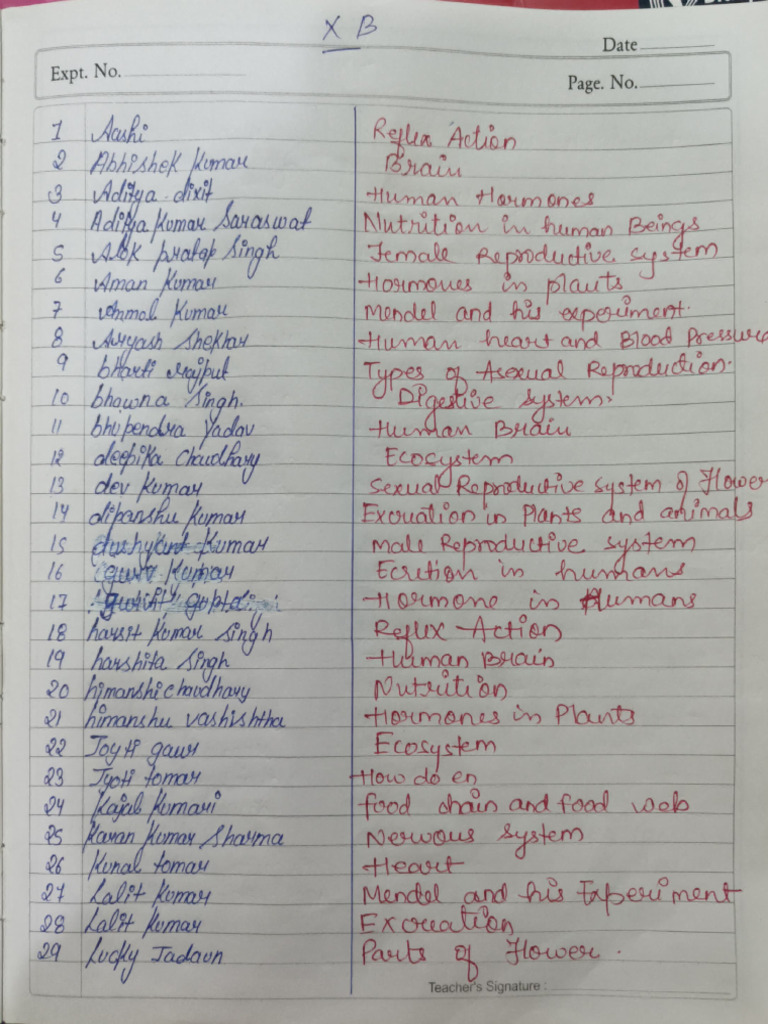 X B
Date
Expt. No.
Page. No.
1 Aashi Reflex Action
2 Abhishek Kumar Brain
3 Aditya dixit Human Hormones
4 Aditya Kumar Saraswat Nutrition in human Beings
5 Alok pratap Singh Female Reproductive system
6 Aman Kumar Hormones in plants
7 Anmol Kumar Mendel and his experiment.
8 Aryash Shekhar Human heart and Blood Pressure
9 bharti rajput Types of Asexual Reproduction.
10 bhawna Singh. Digestive system.
11 bhupendra yadav Human Brain
12 deepika Chaudhary Ecosystem
13 dev Kumar Sexual Reproductive system of Flower
14 dipanshu Kumar Excruation in Plants and animals
15 Kumar Male Reproductive system
16 Kumar Ecrition in humans
17 Hormone in Humans
18 harsit Kumar Singh Reflux Action
19 harshita Singh Human Brain
20 himanshi chaudhary Nutrition
21 himanshu vashishtha Hormones in Plants
22 Joyti gaur Ecosystem
23 Jyoti tomar How do en
24 Kajal Kumari food chain and food web
25 Karan Kumar Sharma Nervous system
26 Kunal tomar Heart
27 Lalit Kumar Mendel and his Experiment
28 Lalit Kumar Excreation
29 Lucky Jadaun Parts of Flower.
Teacher's Signature :